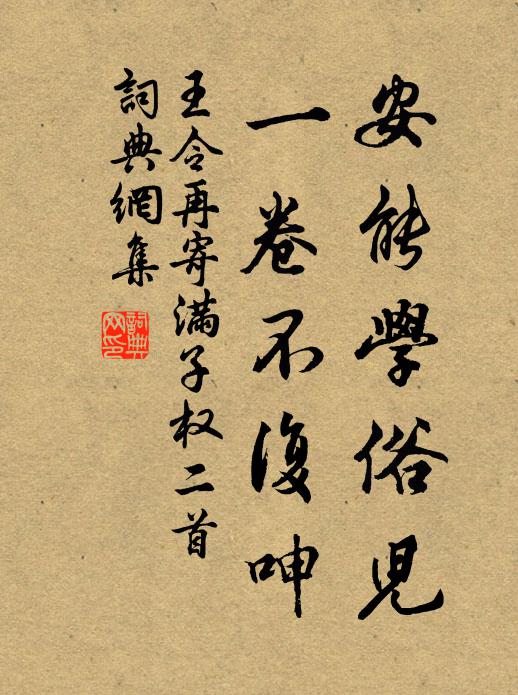 安能學俗児
一卷不復呻
王令再寄满子权二首
詞典網集
詞典網印